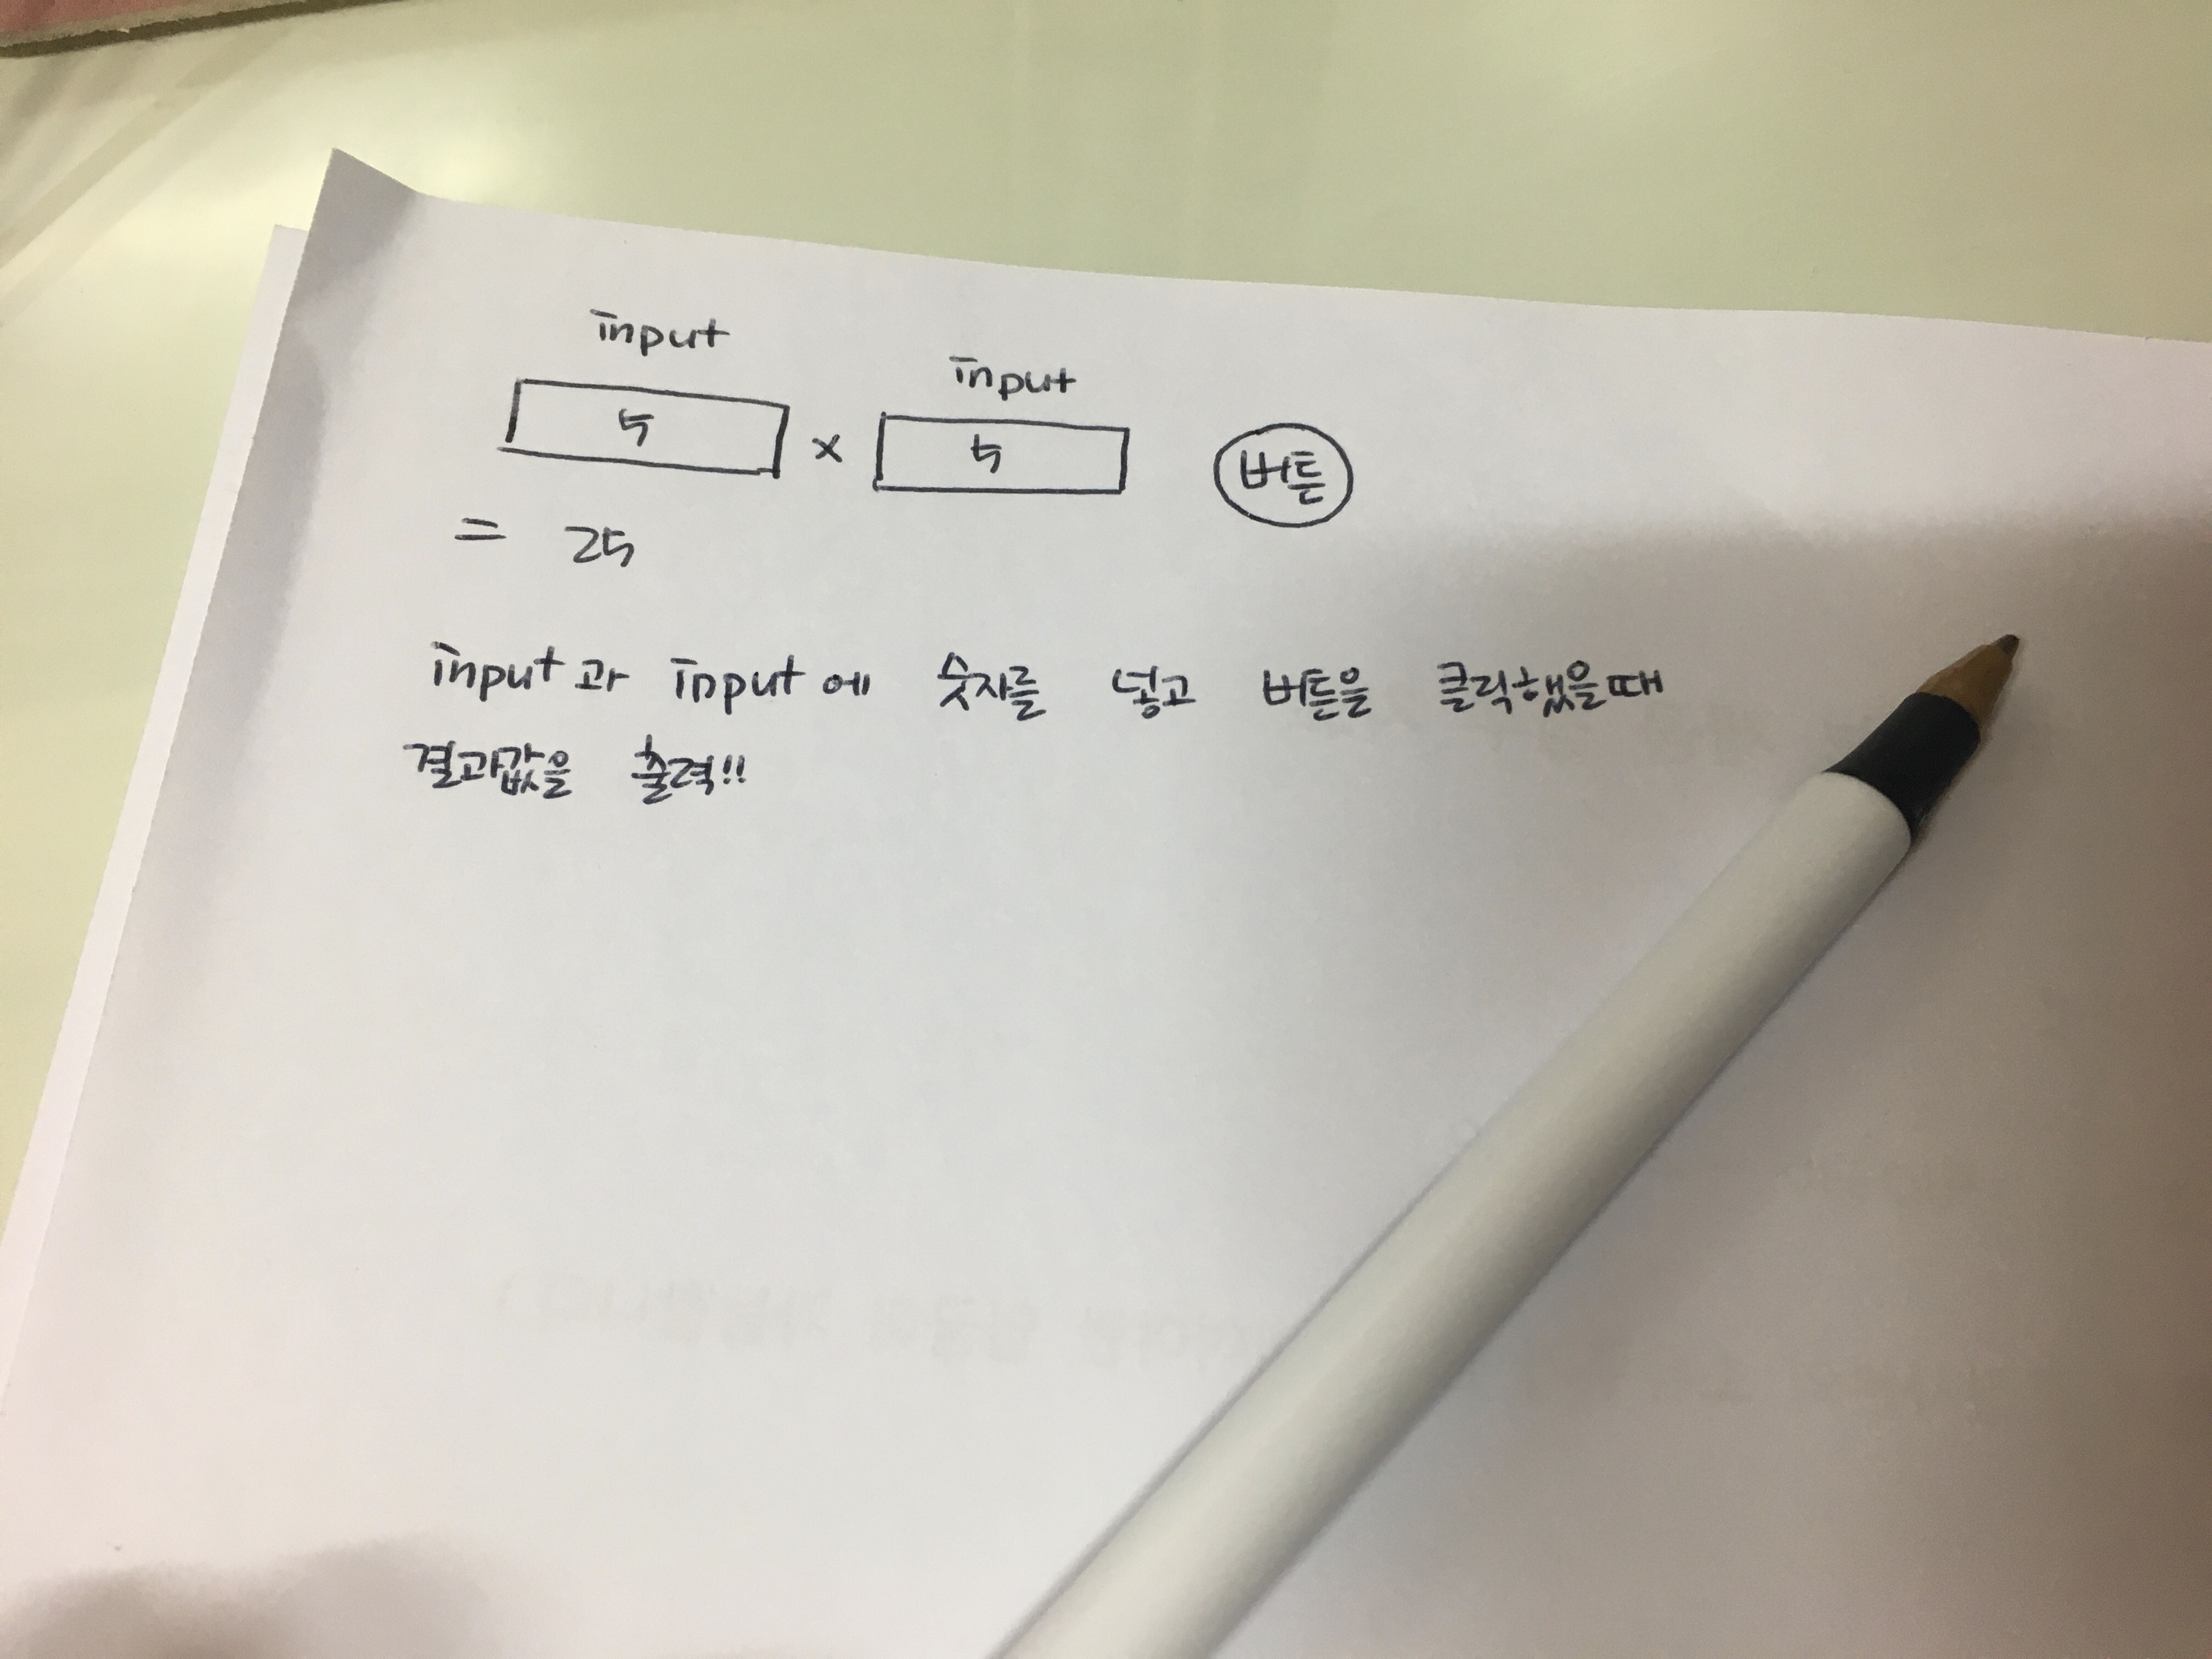 input
input
5 × 5 버튼
= 25
input과 input에 숫자를 넣고 버튼을 클릭했을때
결과값을 출력!!